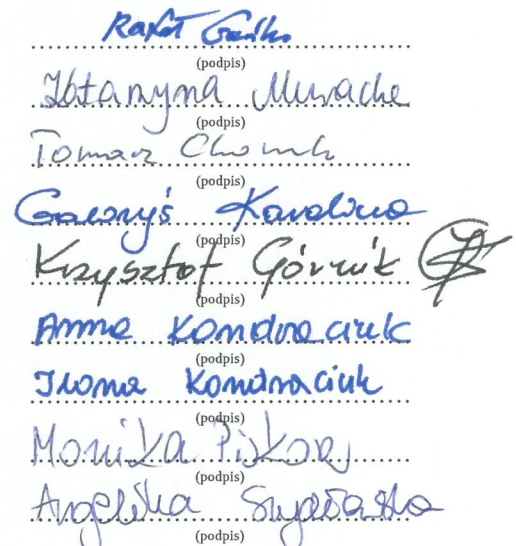 Rafał
(podpis)
Katarzyna
(podpis)
Tomasz
(podpis)
Gawryś Karolina
(podpis)
Krzysztof Górnik
(podpis)
Anna Kondraciuk
(podpis)
Ilona Kondraciuk
(podpis)
Monika Piskorz
(podpis)
Angelika
(podpis)